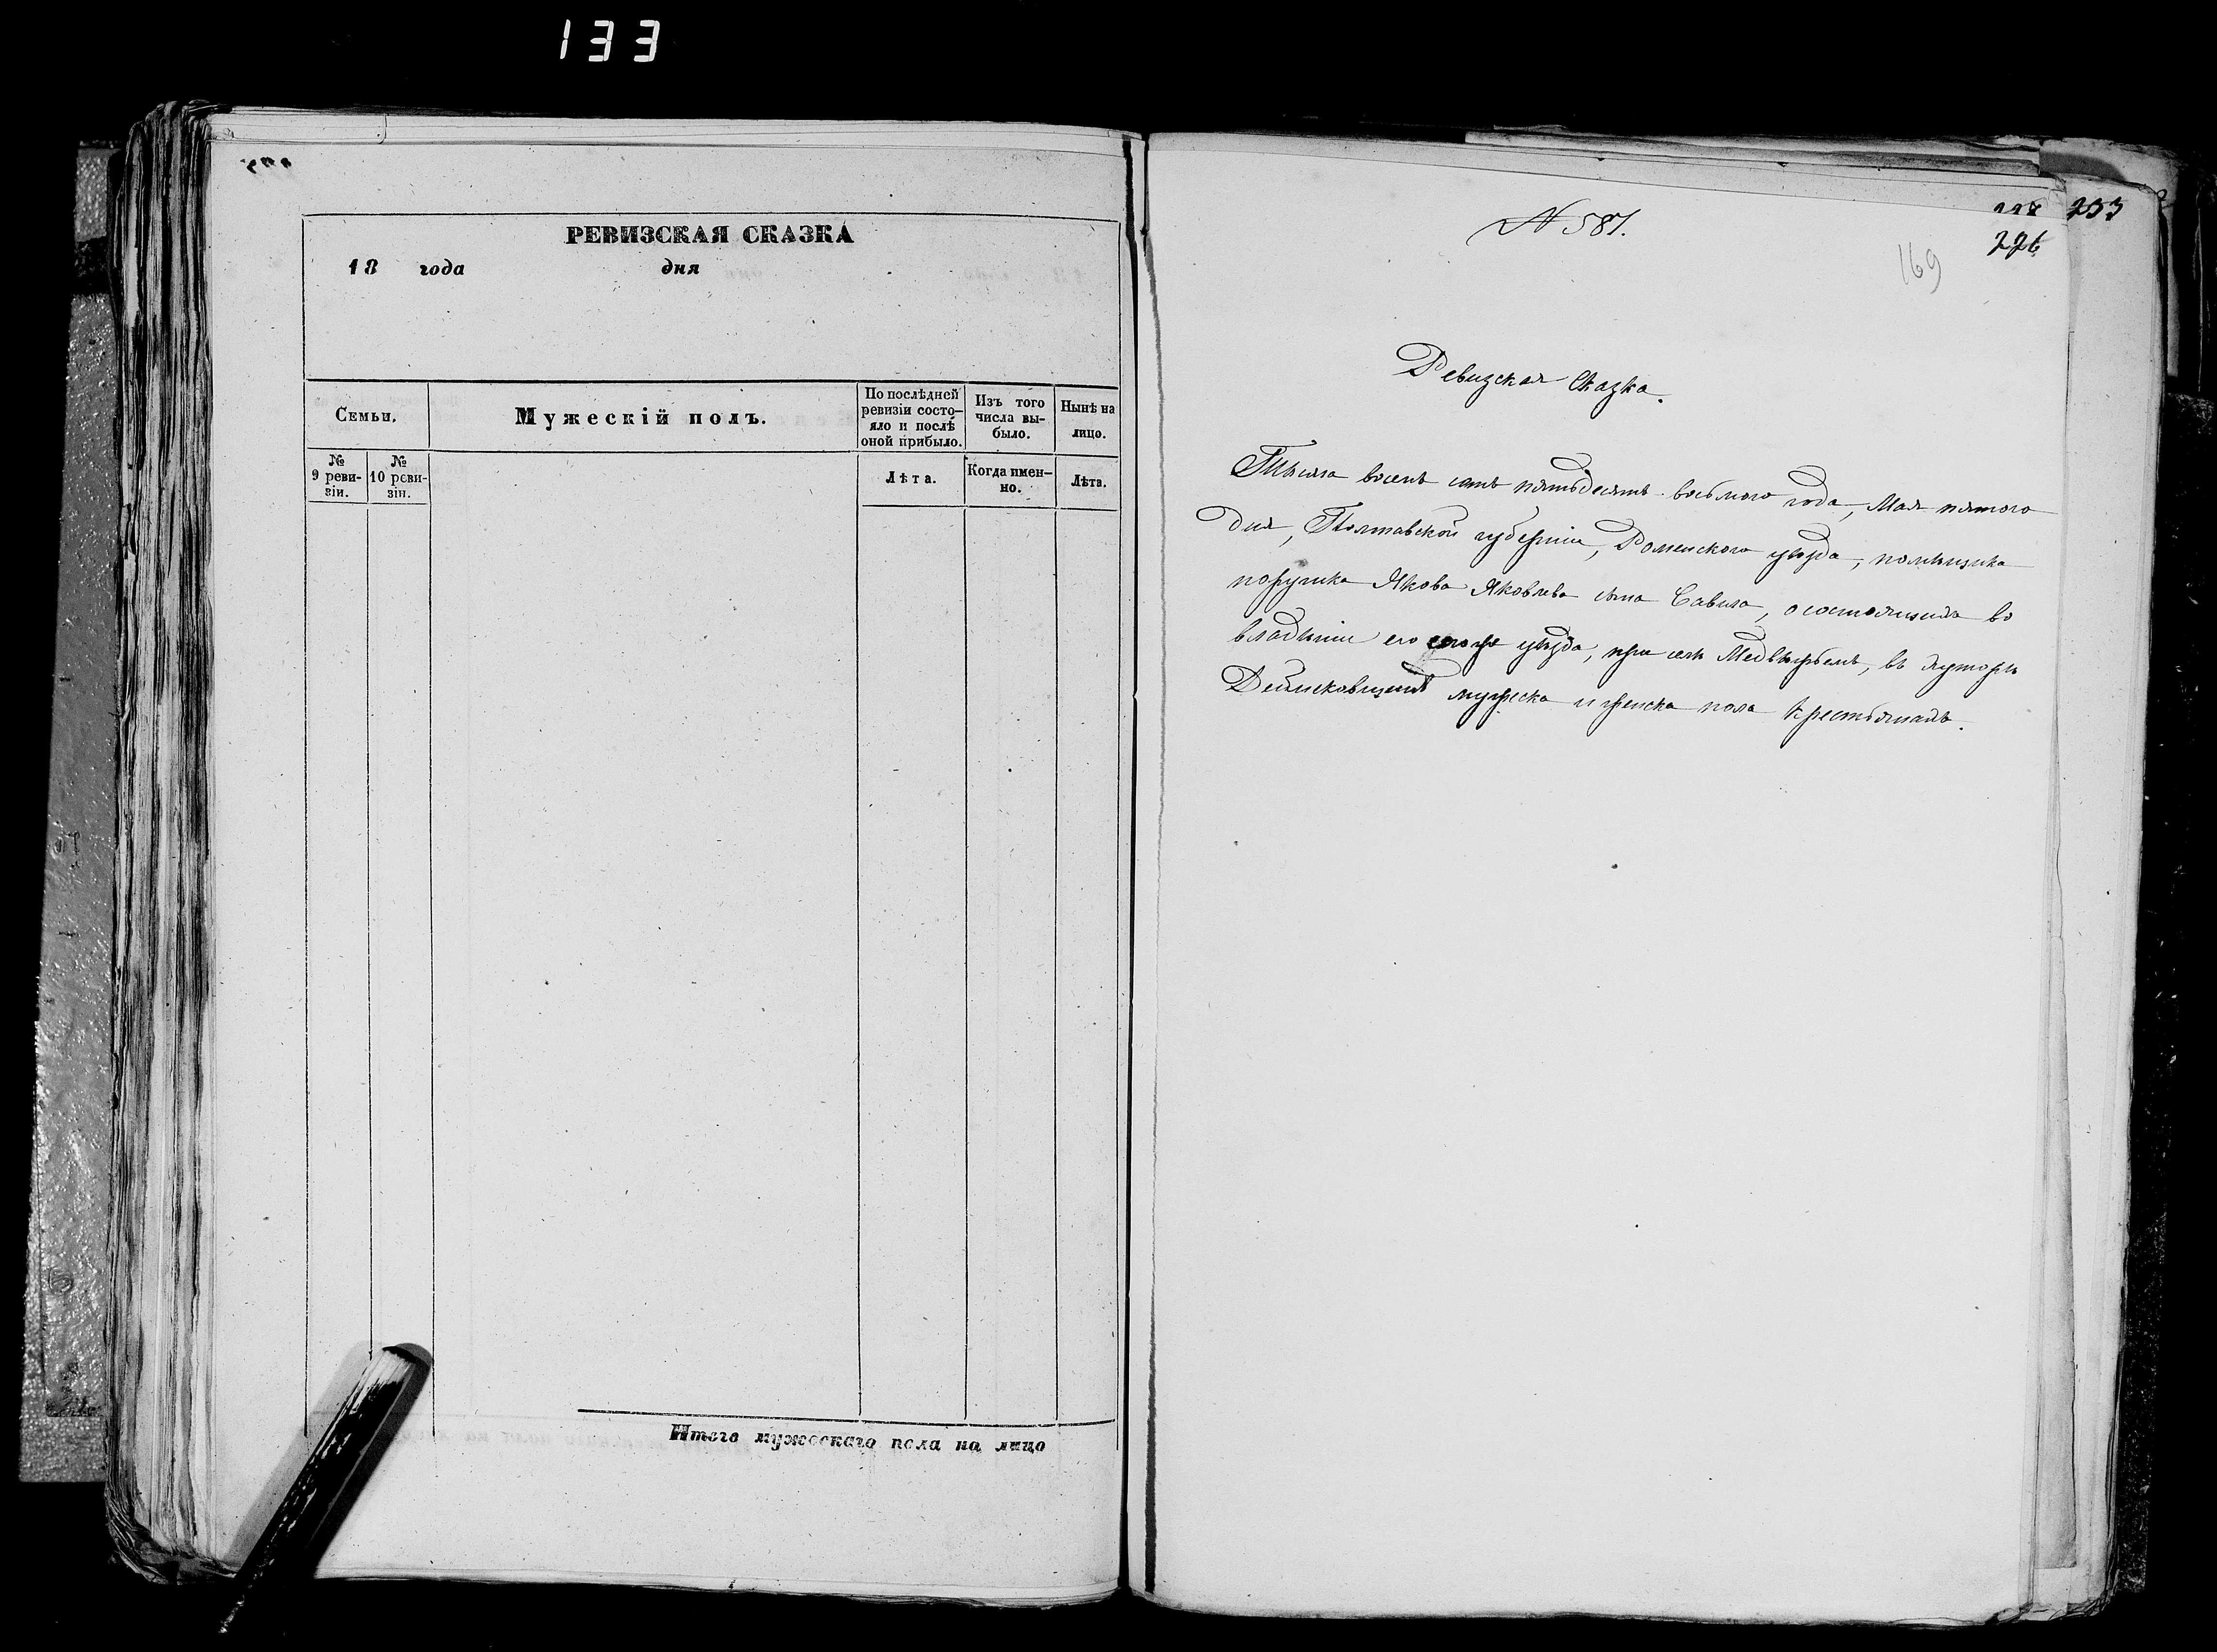 133
РЕВИЗСКАЯ СКАЗКА
18 года дня
Семьи.
Мужескій полъ.
По послѣдней ревизіи состо-яло и послѣ оной прибыло.
Изъ того числа вы-было.
Нынѣ на лицо.
№ 9 реви-зіи.
№ 10 реви-зіи.
Лѣта.
Когда имен-но.
Лѣта.
Итого мужескаго пола на лицо
N 581.
226
169
Ревизская Сказка.
Тысяча восемь сотъ пятьдесятъ восьмого года, Мая пятого
дня, Полтавской губерніи, Роменского уѣзда, помѣщика
поручика Якова Яковлева сына Савича, о состоящихъ во
владѣніи его уѣзда, при селѣ въ хуторѣ
мужеска и женска пола крестьянахъ.